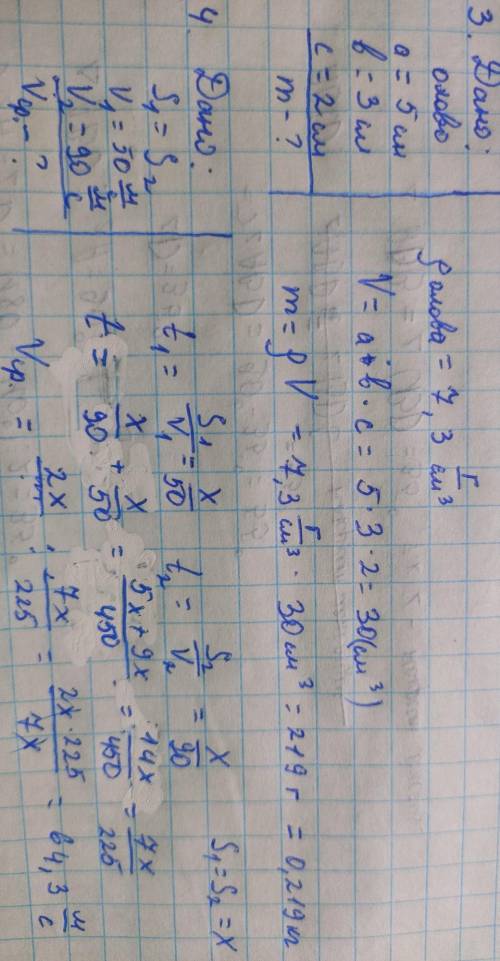 3. Дано:
олово
a = 5 см
b = 3 см
c = 2 см
m - ?
ρ олова = 7,3 г/см³
V = a · b · c = 5 · 3 · 2 = 30 (см³)
m = ρ V = 7,3 г/см³ · 30 см³ = 219 г = 0,219 кг
4. Дано:
S₁ = S₂
V₁ = 50 м/с
V₂ = 90 м/с
Vср. - ?
t₁ = S₁/V₁ = x/50 t₂ = S₂/V₂ = x/90 S₁ = S₂ = x
t = x/90 + x/50 = (5x + 9x)/450 = 14x/450 = 7x/225
Vср. = 2x : 7x/225 = (2x · 225)/7x = 64,3 м/с